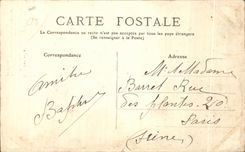 CARTE POSTALE
La Correspondance au recto n'est pas acceptée par tous les pays étrangers
(Se renseigner à la Poste)
Correspondance
Adresse
Amitiés
M. et Madame
Barret Rue
des plantes. 20
Paris
(Seine)